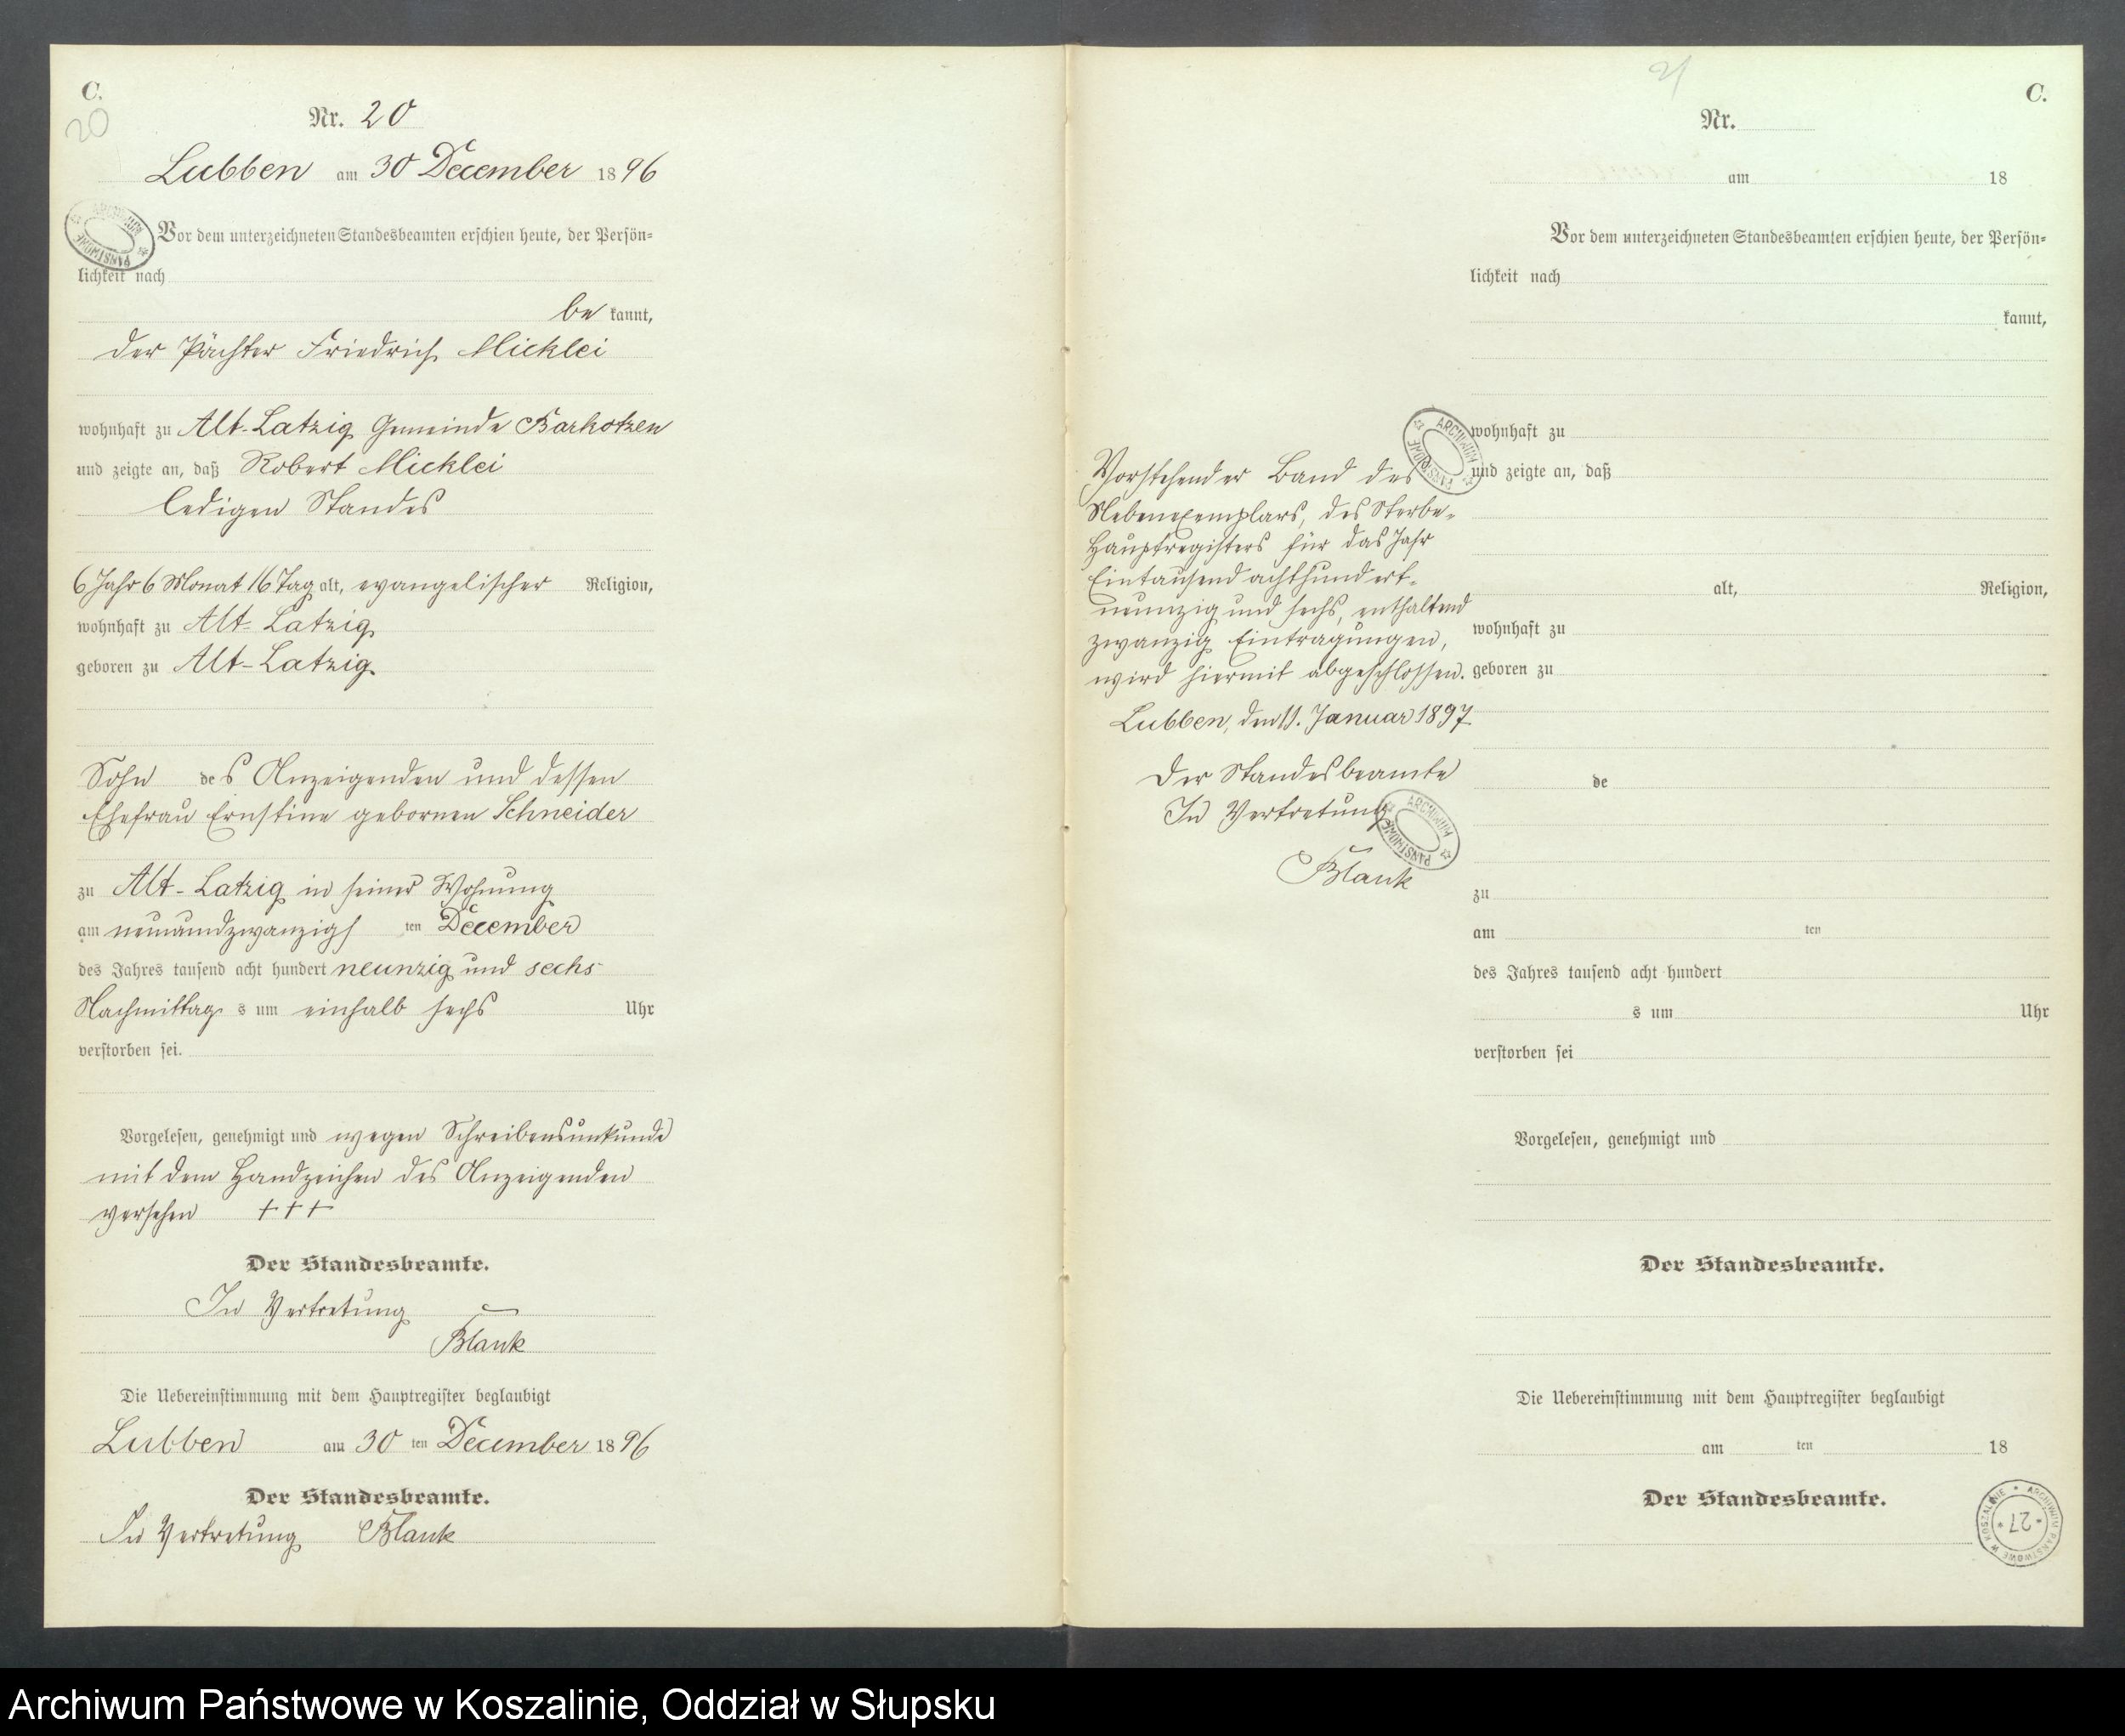 C.
20
Nr. 20
Lubben am 30 December 1896
Vor dem unterzeichneten Standesbeamten erschien heute, der Persön=
lichkeit nach
be kannt,
der Pächter Friedrich Micklei
wohnhaft zu Alt-Latzig Gemeinde Barkotzen
und zeigte an, daß Robert Micklei
ledigen Standes
6 Jahr 6 Monat 16 Tag alt, evangelischer Religion,
wohnhaft zu Alt-Latzig
geboren zu Alt-Latzig
Sohn des Anzeigenden und dessen
Ehefrau Ernstine gebornen Schneider
zu Alt-Latzig in seiner Wohnung
am neunundzwanzigs ten December
des Jahres tausend acht hundert neunzig und sechs
Nachmittag s um einhalb sechs Uhr
verstorben sei.
Vorgelesen, genehmigt und wegen Schreibensunkunde
mit dem Handzeichen des Anzeigenden
versehen +++
Der Standesbeamte.
In Vertretung
Blank
Die Uebereinstimmung mit dem Hauptregister beglaubigt
Lubben am 30 ten December 1896
Der Standesbeamte.
In Vertretung Blank
21
C.
Nr.
am 18
Vor dem unterzeichneten Standesbeamten erschien heute, der Persön=
lichkeit nach
kannt,
wohnhaft zu
und zeigte an, daß
alt, Religion,
wohnhaft zu
geboren zu
de
zu
am ten
des Jahres tausend acht hundert
s um Uhr
verstorben sei
Vorgelesen, genehmigt und
Der Standesbeamte.
Die Uebereinstimmung mit dem Hauptregister beglaubigt
am ten 18
Der Standesbeamte.
Vorstehender Band des
Nebenexemplars, des Sterbe-
Hauptregisters für das Jahr
Eintausend achthundert-
neunzig und sechs, enthaltend
zwanzig Eintragungen,
wird hiermit abgeschlossen.
Lubben, den 11. Januar 1897
Der Standesbeamte
In Vertretung
Blank
ARCHIWUM PAŃSTWOWE
ARCHIWUM PAŃSTWOWE
ARCHIWUM PAŃSTWOWE
ARCHIWUM PAŃSTWOWE W KOSZALINIE
* 27 *
Archiwum Państwowe w Koszalinie, Oddział w Słupsku